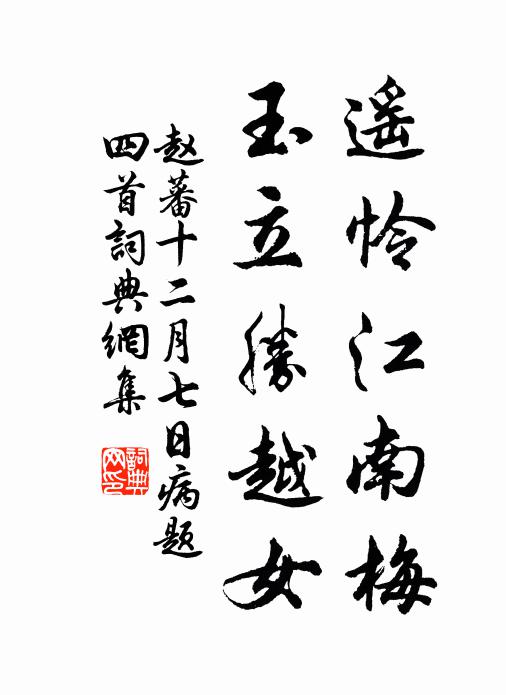 遥怜江南梅
玉立勝越女
赵蕃十二月七日病题
四首詞典網集
詞典网印